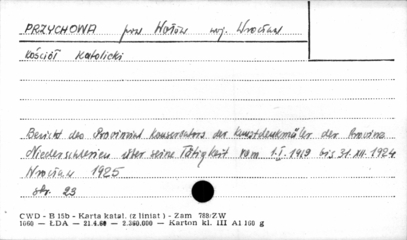 PRZYCHOWA pow Wołów woj. Wrocław
Kościół Katolicki
Bericht des Provinzial Konservators der Kunstdenkmäler der Provinz
Niederschlesien über seine Tätigkeit vom 1.I.1919 bis 31.XII.1924
Wrocław 1925
str. 23
CWD - B 15b - Karta katal. (z liniat) - Zam 788/ZW
1060 — ŁDA — 21.4.60 — 2.350.000 — Karton kl. III A1 160 g